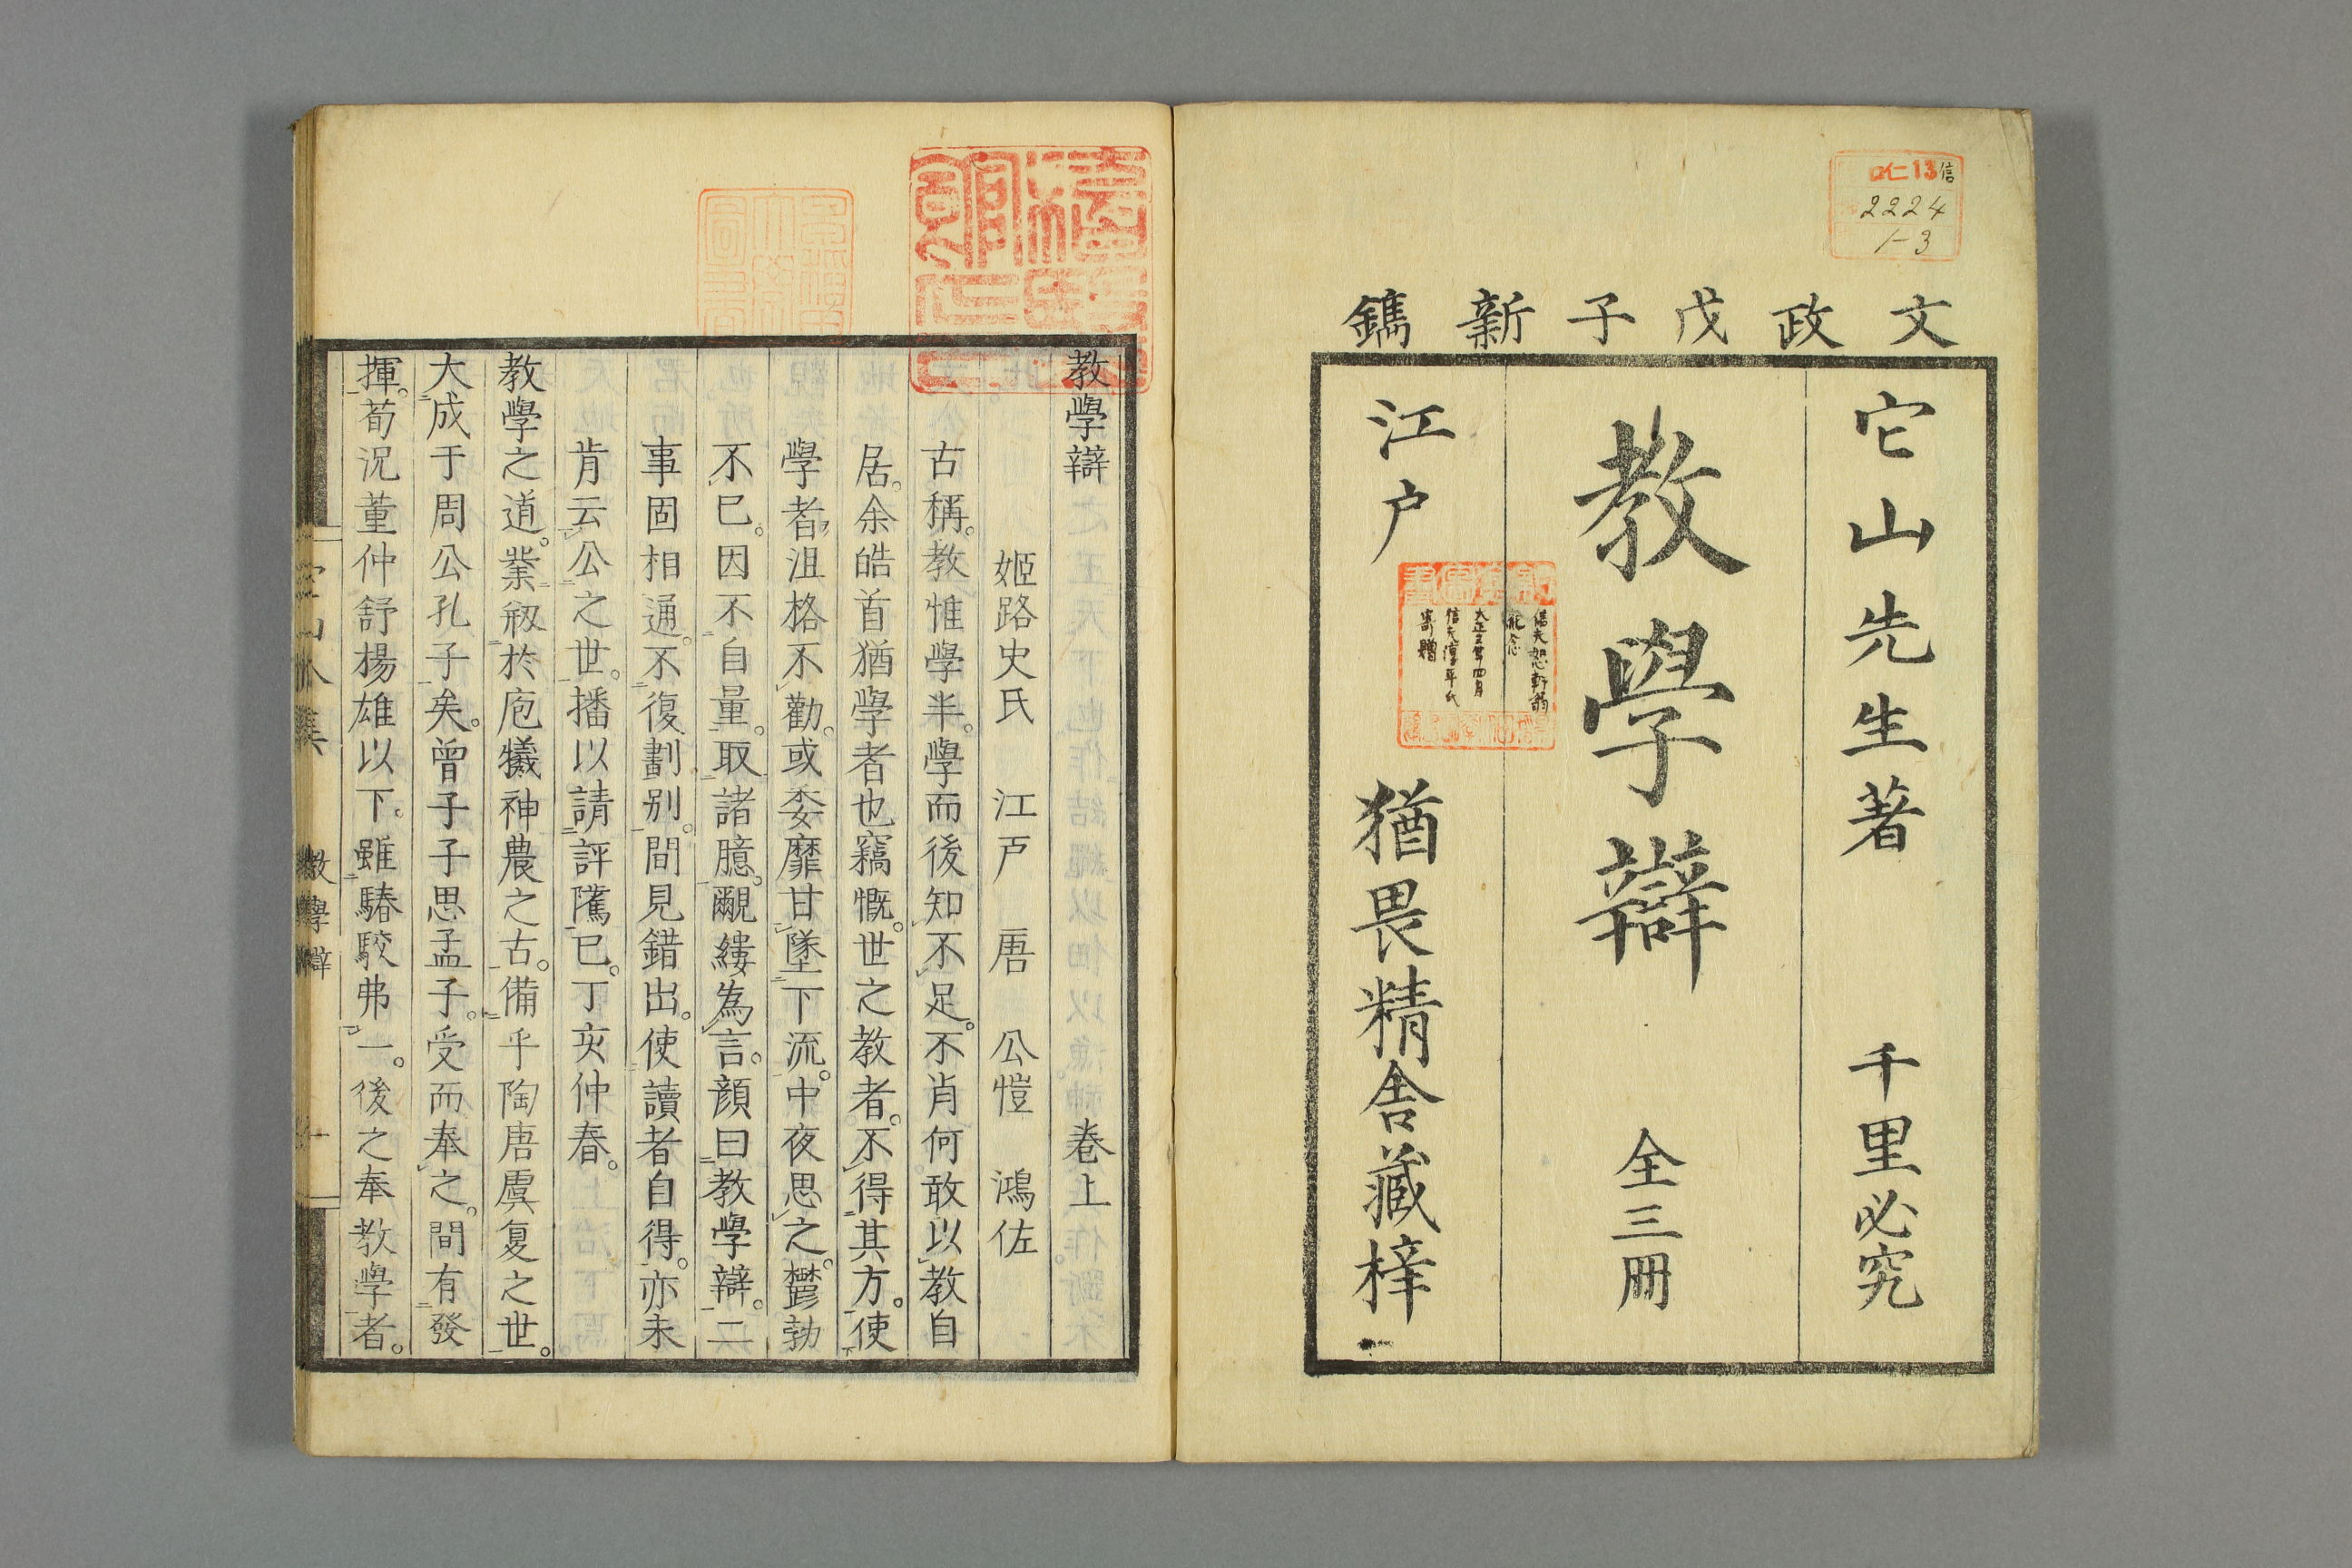 文政戊子新鐫
它山先生著　千里必究
教學辯　全三冊
江戸　猶畏精舍藏梓
ロ仁13信
2224
1-3
大正三年四月
信夫淳平氏
寄贈
教學辯　卷上
姬路史氏　江戸　唐　公愷　鴻佐
古稱。教惟學半。學而後知不足。不肖何敢以教自
居。余皓首猶學者也竊慨。世之教者。不得其方。使
學者沮格不勸。或委靡甘墜下流。中夜思之。鬱勃
不已。因不自量。取諸臆。覼縷為言。顏曰教學辯。二
事固相通。不復劃別。間見錯出。使讀者自得。亦未
肯云公之世。播以請評騭已。丁亥仲春。
教學之道。業剏於庖犧神農之古。備乎陶唐虞夏之世。
大成于周公孔子矣。曾子子思孟子。受而奉之。間有發
揮。荀況董仲舒楊雄以下。雖騞駮弗一。後之奉教學者。
教學辯